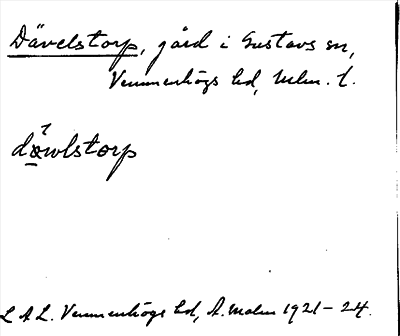 Dävelstorp, gård i Gustavs sn,
Vemmenhögs hd, Mlm. l.
dä̱wlstorp
L A L. Vemmenhögs hd, A. Malm 1921-24.